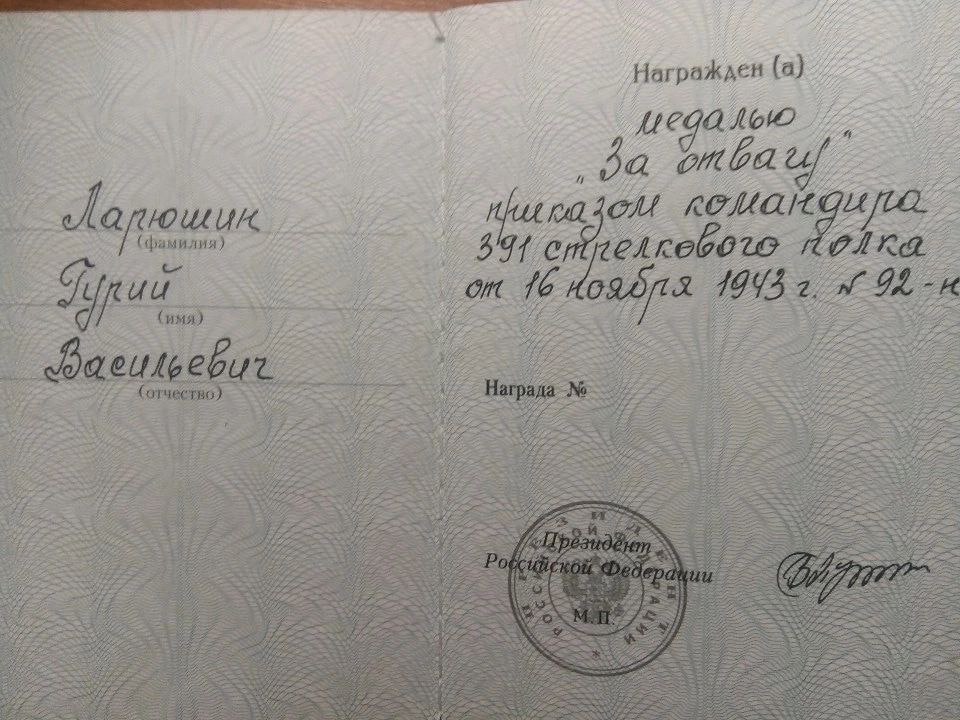 Ларюшин
(фамилия)
Гурий
(имя)
Васильевич
(отчество)
Награжден (а)
медалью
„За отвагу"
приказом командира
391 стрелкового полка
от 16 ноября 1943 г. № 92-н
Награда №
Президент
Российской Федерации
М.П.
ПРЕЗИДЕНТ
РОССИЙСКОЙ ФЕДЕРАЦИИ